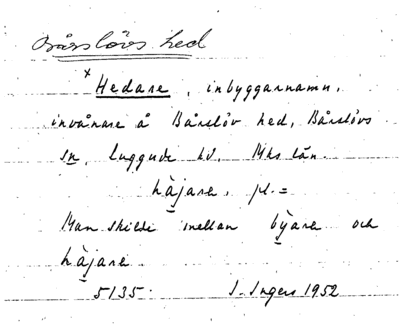 Bårslövs hed
x Hedare, inbyggarnamn,
invånare å Bårslöv hed, Bårslövs
sn, Luggude hd, Mhs län.
hàjare, pl. =
Man skilde mellan býare och
hàjare
5135. I. Ingers 1952